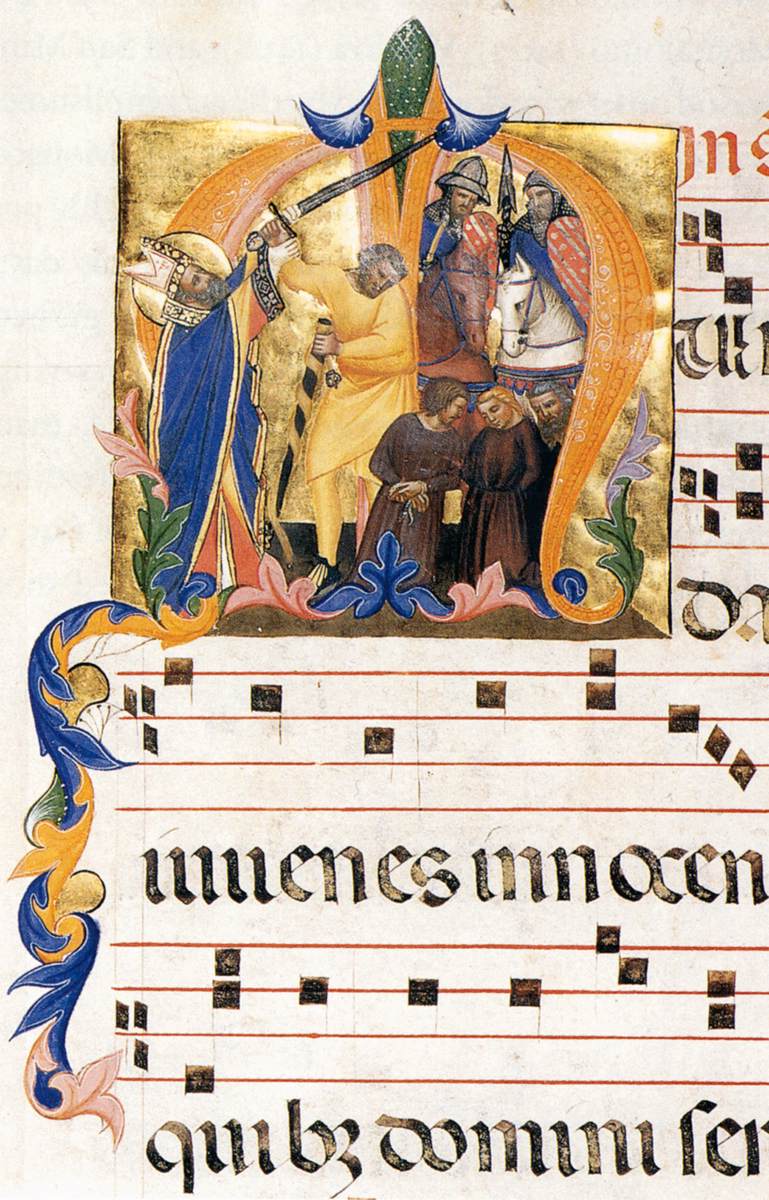 In s
da
iuuenes innocen
quibꝫ domini ser